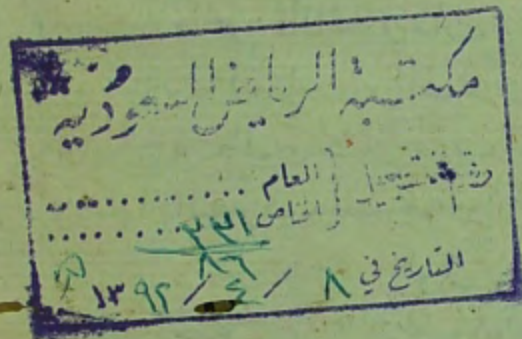 مكتبة الرياض السعودية
رقم التسجيل { العام ............
الخاص ............
٣٣١
٨٦
التاريخ في ٨ / ٤ / ١٣٩٢ هـ